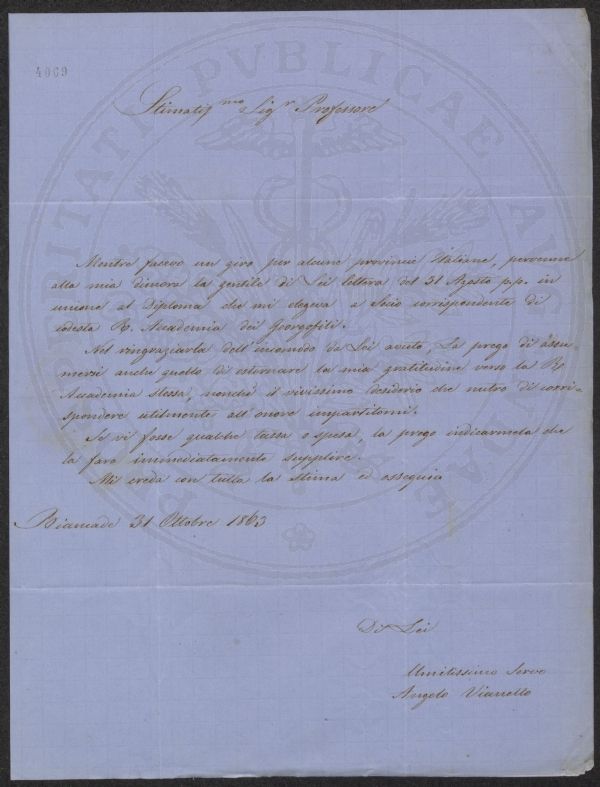 4069
Stimatiss.mo Sig.r Professore
Mentre facevo un giro per alcune provincie Italiane, pervenne
alla mia dimora la gentile di Lei lettera del 31 Agosto p.p. in
unione al Diploma che mi elegeva a Socio corrispondente di
codesta R. Accademia dei Georgofili.
Nel ringraziarla dell'incomodo da Lei avuto, La prego di assu-
mersi anche quello di esternare la mia gratitudine verso la R.
Accademia stessa, nonché il vivissimo desiderio che nutro di corri-
spondere utilmente all'onore impartitomi.
Se vi fosse qualche tassa o spesa, la prego indicarmela che
la farò immediatamente supplire.
Mi creda con tutta la stima ed ossequio
Biancade 31 Ottobre 1863
Di Lei
Umilissimo Servo
Angelo Vianello
PUBLICAE